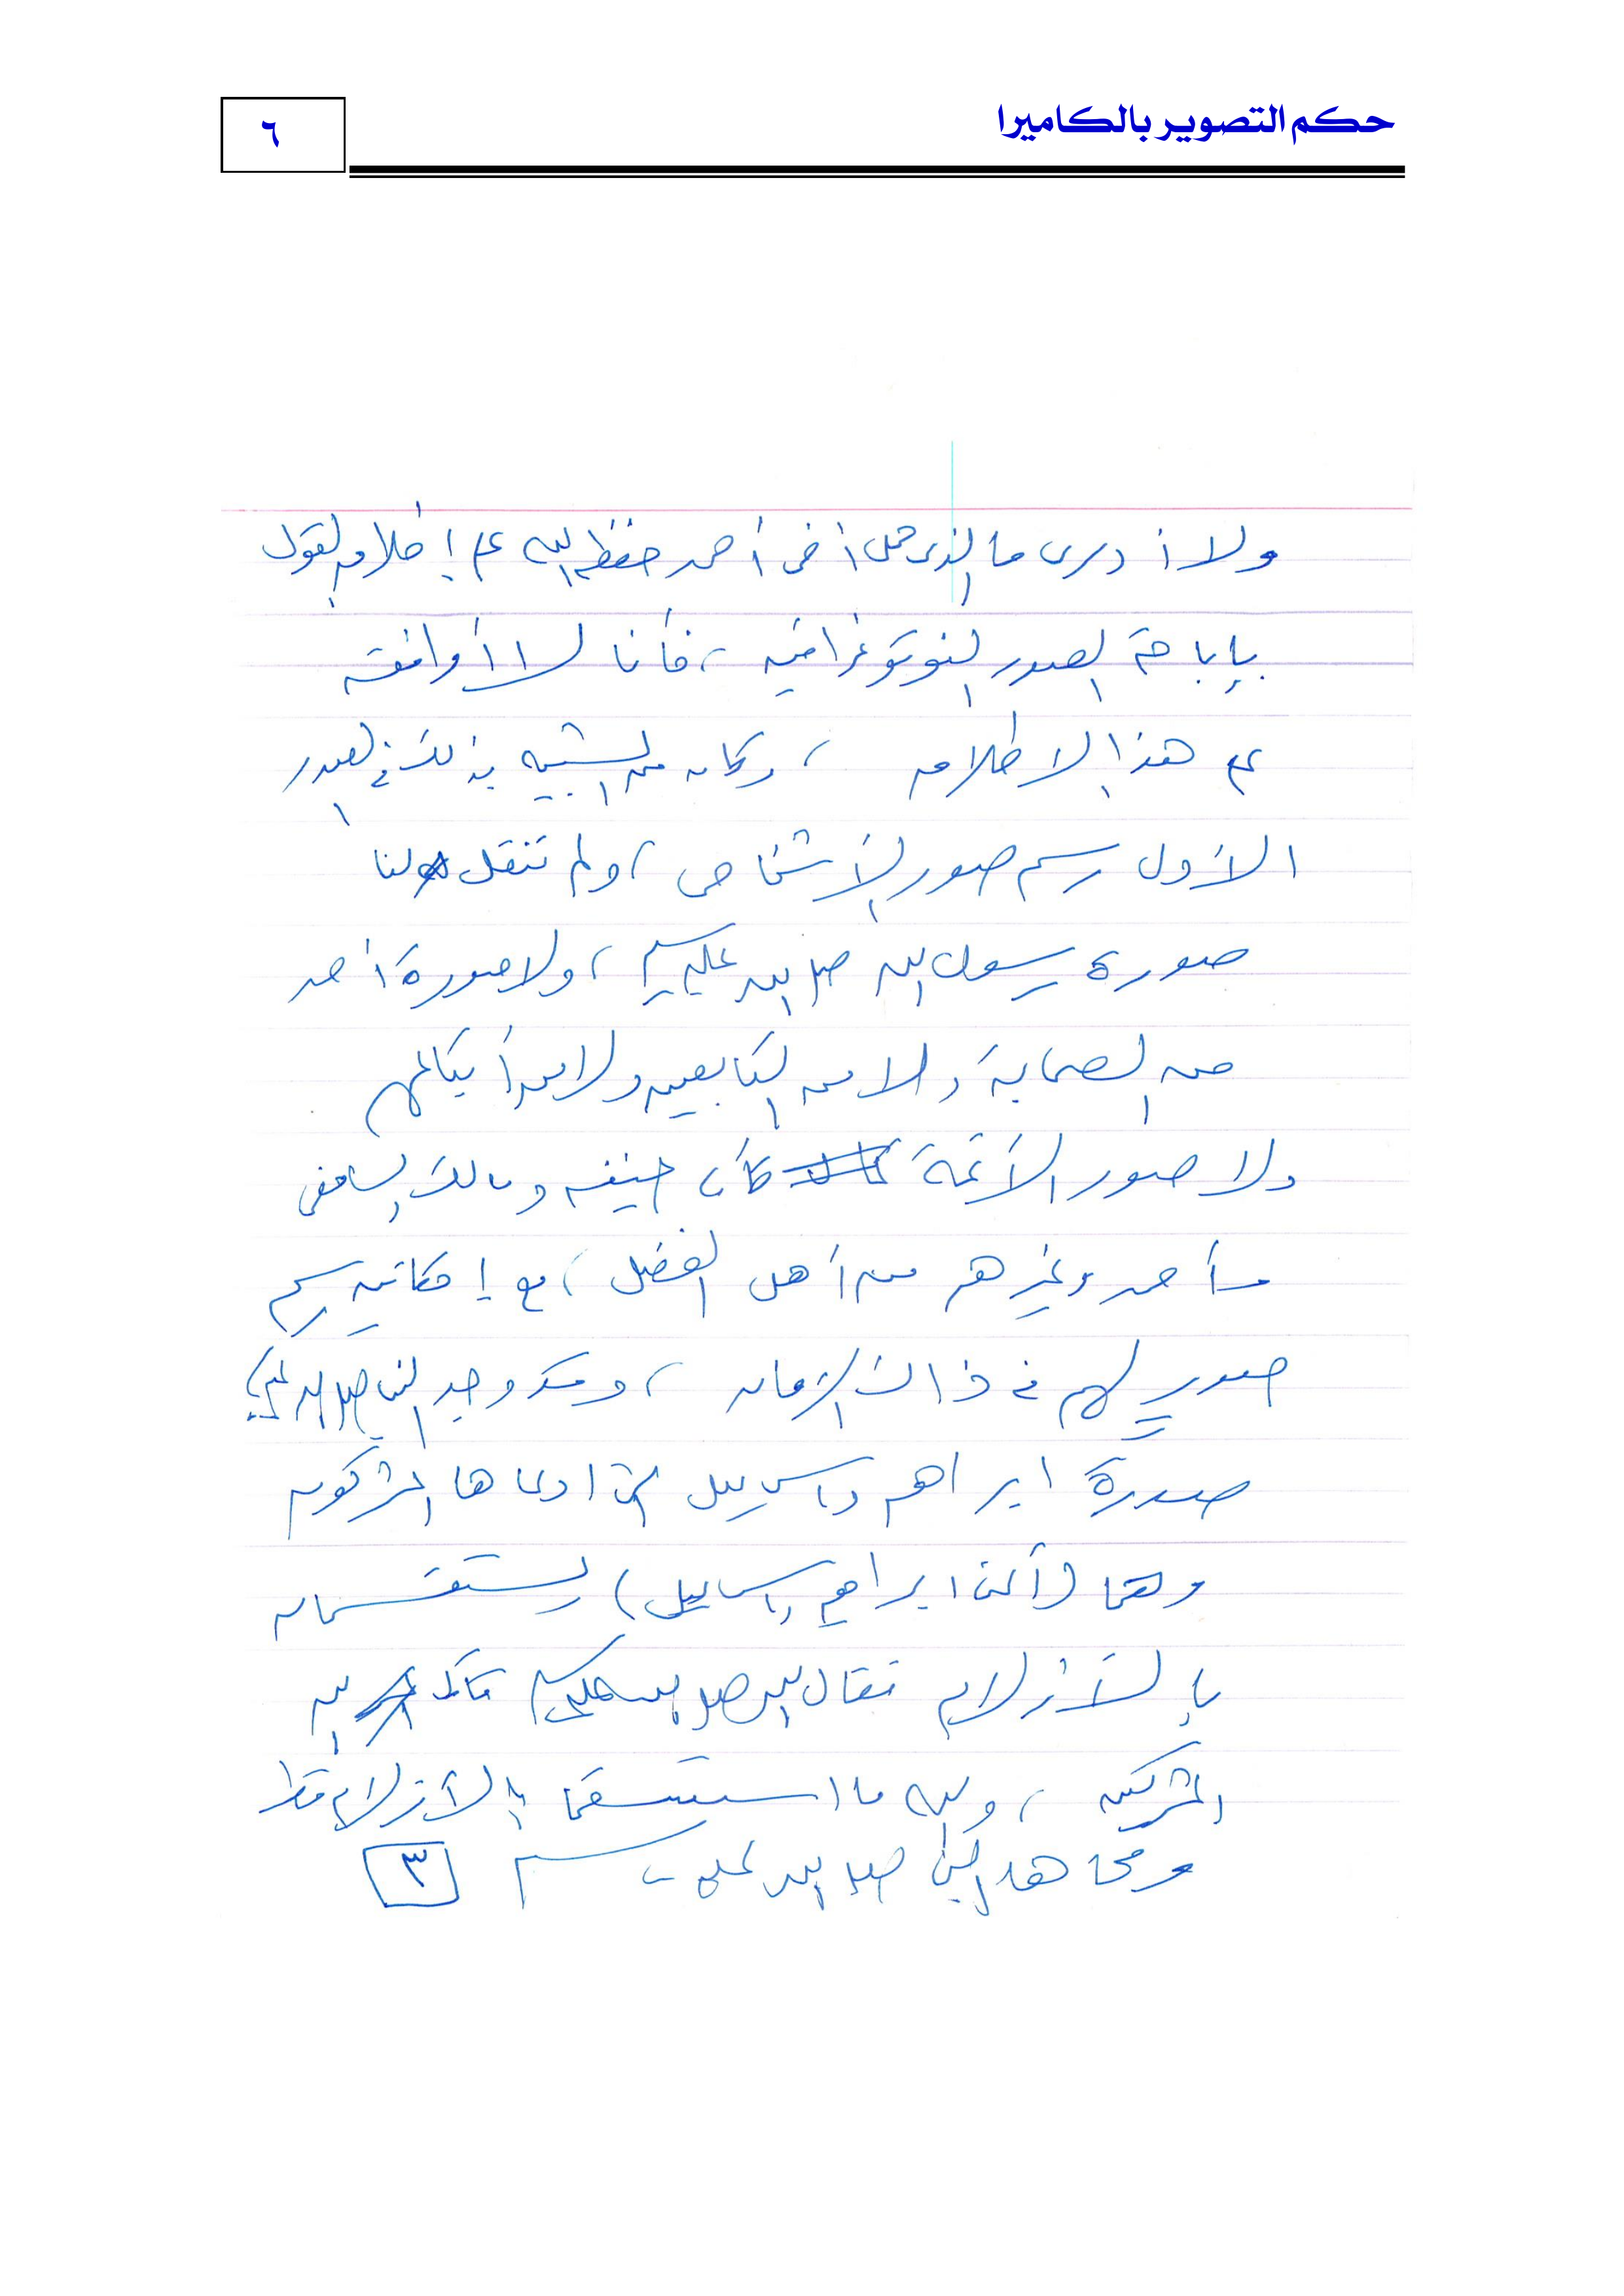 حكم التصوير بالكاميرا
٦
ولا أدرى ما الذى حمل أخى أحمد حفظه الله على إطلاق القول
بإباحة الصور الفوتوغرافية، فأنا لا أوافقه
على هذا الإطلاق، وكان من الشبيه بذلك فى الصدر
الأول رسم صور الأشخاص، ولم تنقل لنا
صورة رسول الله صلى الله عليه وسلم، ولا صورة أحد
من الصحابة ولا من التابعين ولا من أتباعهم
ولا صور الأئمة كأبى حنيفة ومالك والشافعى
وأحمد وغيرهم من أهل الفضل، مع إمكانية رسم
صور لهم فى ذاك الزمان، وقد وجد النبى صلى الله عليه وسلم
صورة ابراهيم واسماعيل التى ادعاها المشركون
وهما (أعنى ابراهيم واسماعيل) يستقسمان
بالأزلام فقال النبى صلى الله عليه وسلم قاتل الله
المشركين، والله ما استقسما بالأزلام قط
ومحاها النبى صلى الله عليه وسلم
٣